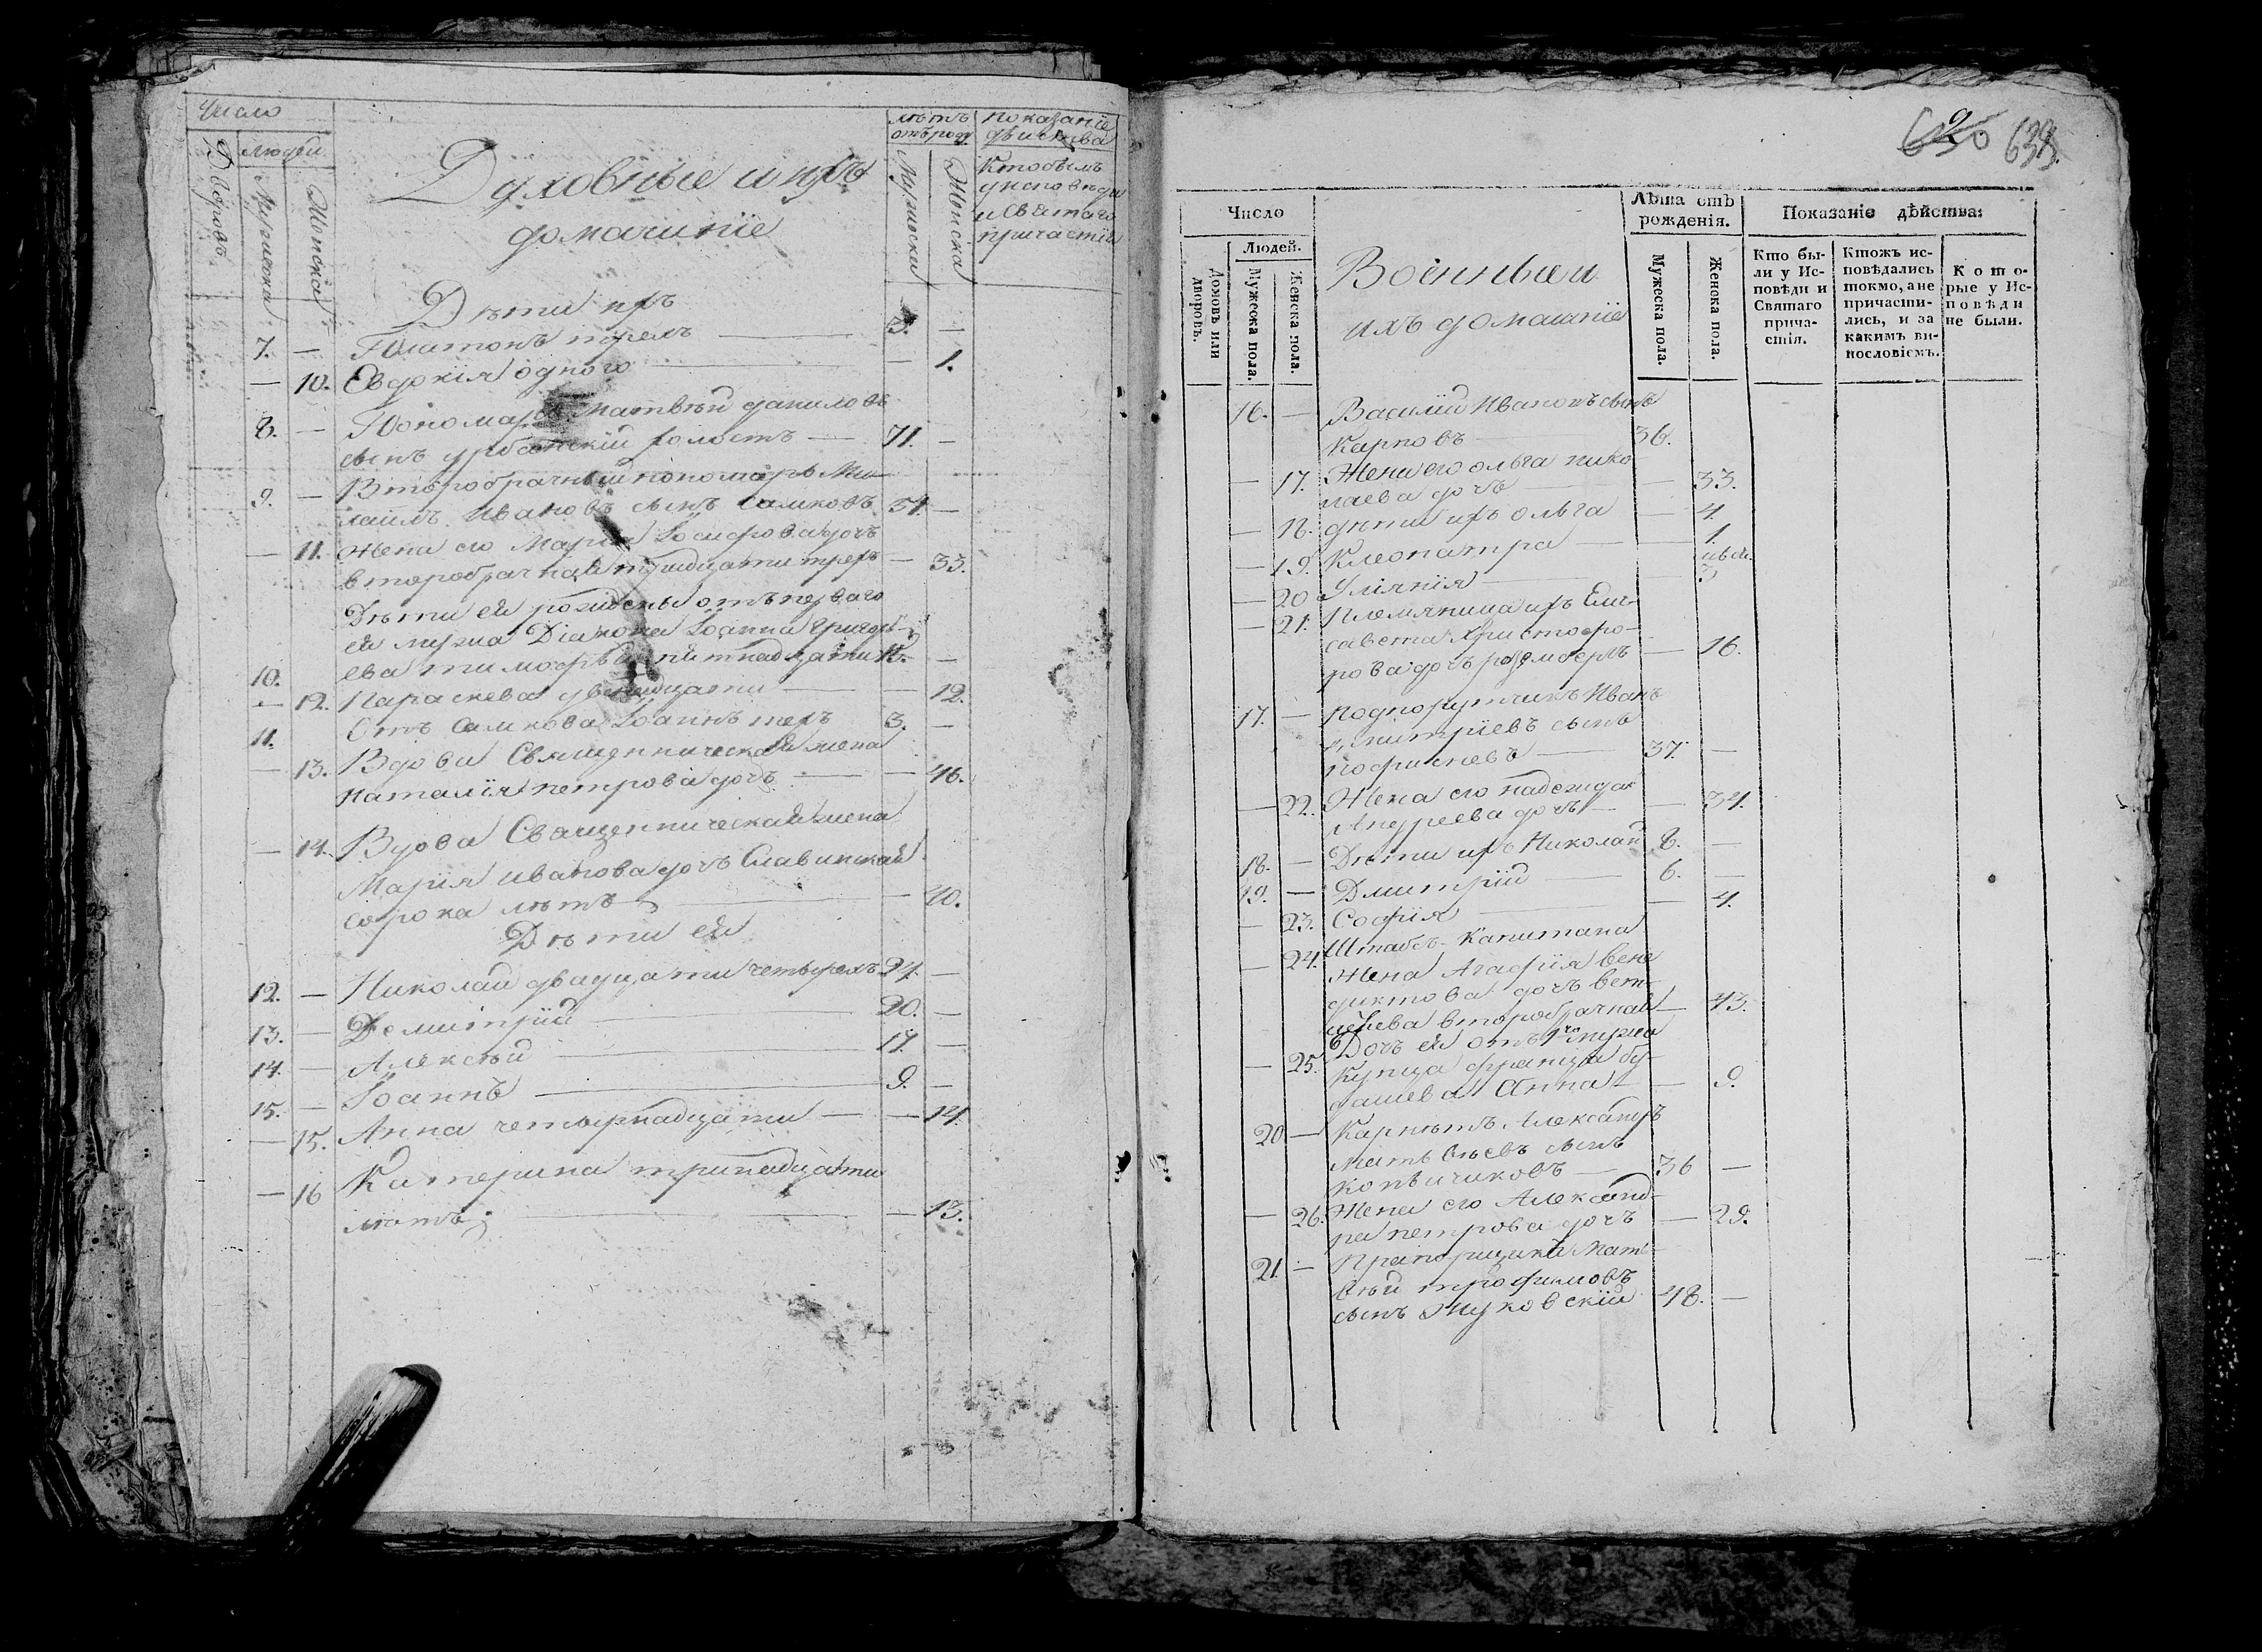 Число
Людей
Дворовъ
Мужеска
Женска
Духовные и ихъ
домашніе
лѣтъ
отъ роду
Мужеска
Женска
Показаніе
дѣйства
Кто былъ
у исповѣди
и Святаго
причастія
Дѣти ихъ
7. — Платонъ трехъ — 3. —
— 10. Евдокія одного — — 1.
8. — Пономарь Матвѣй даниловъ
сынъ урбанскій холостъ — 71. —
9. — Второбрачный пономарь Ми-
хаилъ Ивановъ сынъ Самковъ 34. —
— 11. Жена его Марія Іосифова дочъ
второбрачная тридцати трехъ — 33.
Дѣти ея рождены отъ перваго
ея мужа Діакона Іоанна Григорь-
10. ева тимофѣй пятнадцати 15. —
— 12. Параскева двенадцати — — 12.
11. Отъ Самкова Іоаннъ трехъ 3. —
— 13. Вдова Священническая жена
Наталія петрова дочъ — — 46.
— 14. Вдова Священническая жена
Марія иванова дочъ Славинская
сорока лѣтъ — — 40.
Дѣти ея
12. — Николай двадцати четырехъ 24. —
13. — Демитрій — 20. —
14. — Алексѣй — 17. —
15. — Іоаннъ — 9. —
— 15. Анна четырнадцати — — 14.
— 16 Катерина тринадцати
лѣтъ — — 13.
633.
Число
Людей.
Домовъ или
дворовъ.
Мужеска пола.
Женска пола.
Военные и
ихъ домашніе
Лѣта отъ
рожденія.
Мужеска пола.
Женска пола.
Показаніе дѣйства:
Кто бы-
ли у Ис-
повѣди и
Святаго
прича-
стія.
Ктожъ ис-
повѣдались
токмо, а не
причасти-
лись, и за
какимъ ви-
нословіемъ.
Кото-
рые у Ис-
повѣди
не были.
16. — Василій Ивановъ сынъ
Карповъ — 36.
— 17. Жена его ольга нико-
лаева дочъ — — 33.
— 18. дѣти ихъ ольга — 4.
— 19. Клеопатра — — 1.
— 20 Уліянія — 3
— 21. Племяница ихъ Ели-
савета Христофо-
рова дочъ — 16.
17. — Подпорутчикъ Иванъ
дмитріевъ сынъ
— 37. —
— 22. Жена его надежда
Андреева дочъ — — 34.
18. — Дѣти ихъ Николай 8. —
19. — Дмитрій — 6. —
— 23. Софія — — 4.
— 24. Штабсъ-Капитана
жена Агафія вене
диктова дочъ
второбрачная — 43.
— 25. Дочъ ея отъ 1го мужа
Купца франца бу-
Анна — — 9.
20 — Карнетъ Александръ
Матвѣевъ сынъ
— 36 —
— 26. Жена его Александ-
ра петрова дочъ — 29.
21. — Прапорщикъ Мат-
вѣй трофимовъ
сынъ Жуковскій 48. —